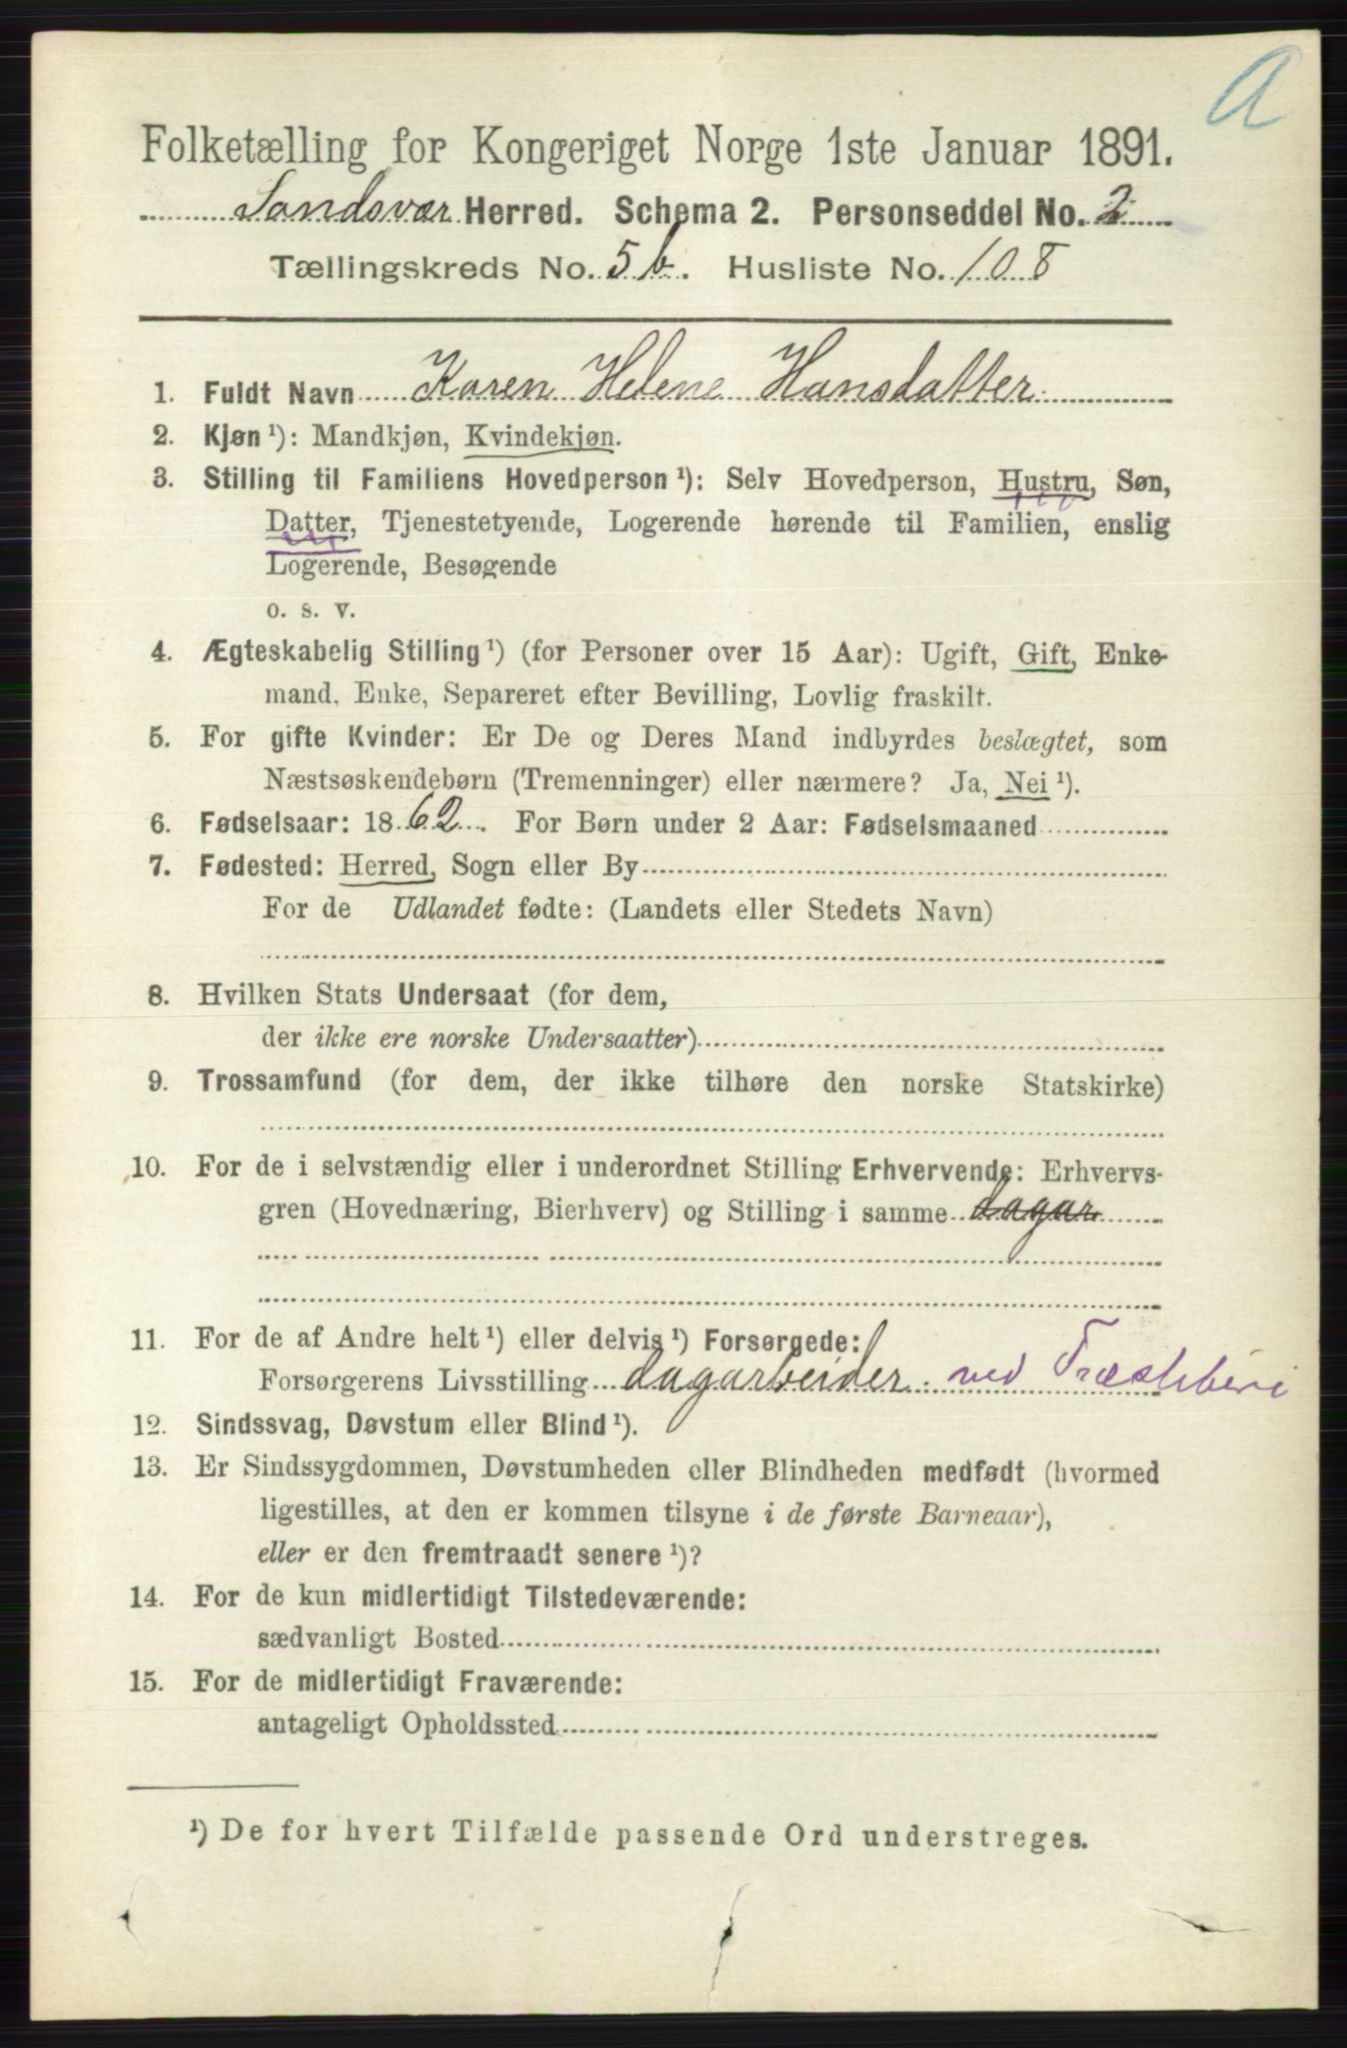 A
Folketælling for Kongeriget Norge 1ste Januar 1891.
Sandsvær Herred. Schema 2. Personseddel No. 2
Tællingskreds No. 5 b. Husliste No. 108
1. Fuldt Navn Karen Helene Hansdatter
2. Kjøn ¹): Mandkjøn, Kvindekjøn.
3. Stilling til Familiens Hovedperson ¹): Selv Hovedperson, Hustru, Søn,
Datter, Tjenestetyende, Logerende hørende til Familien, enslig
Logerende, Besøgende
o. s. v.
4. Ægteskabelig Stilling ¹) (for Personer over 15 Aar): Ugift, Gift, Enke-
mand, Enke, Separeret efter Bevilling, Lovlig fraskilt.
5. For gifte Kvinder: Er De og Deres Mand indbyrdes beslægtet, som
Næstsøskendebørn (Tremenninger) eller nærmere? Ja, Nei ¹).
6. Fødselsaar: 1862. For Børn under 2 Aar: Fødselsmaaned
7. Fødested: Herred, Sogn eller By
For de Udlandet fødte: (Landets eller Stedets Navn)
8. Hvilken Stats Undersaat (for dem,
der ikke ere norske Undersaatter)
9. Trossamfund (for dem, der ikke tilhøre den norske Statskirke)
10. For de i selvstændig eller i underordnet Stilling Erhvervende: Erhvervs-
gren (Hovednæring, Bierhverv) og Stilling i samme dagar
11. For de af Andre helt ¹) eller delvis ¹) Forsørgede:
Forsørgerens Livsstilling dagarbeider ved Træsliberi
12. Sindssvag, Døvstum eller Blind ¹).
13. Er Sindssygdommen, Døvstumheden eller Blindheden medfødt (hvormed
ligestilles, at den er kommen tilsyne i de første Barneaar),
eller er den fremtraadt senere ¹)?
14. For de kun midlertidigt Tilstedeværende:
sædvanligt Bosted
15. For de midlertidigt Fraværende:
antageligt Opholdssted
¹) De for hvert Tilfælde passende Ord understreges.